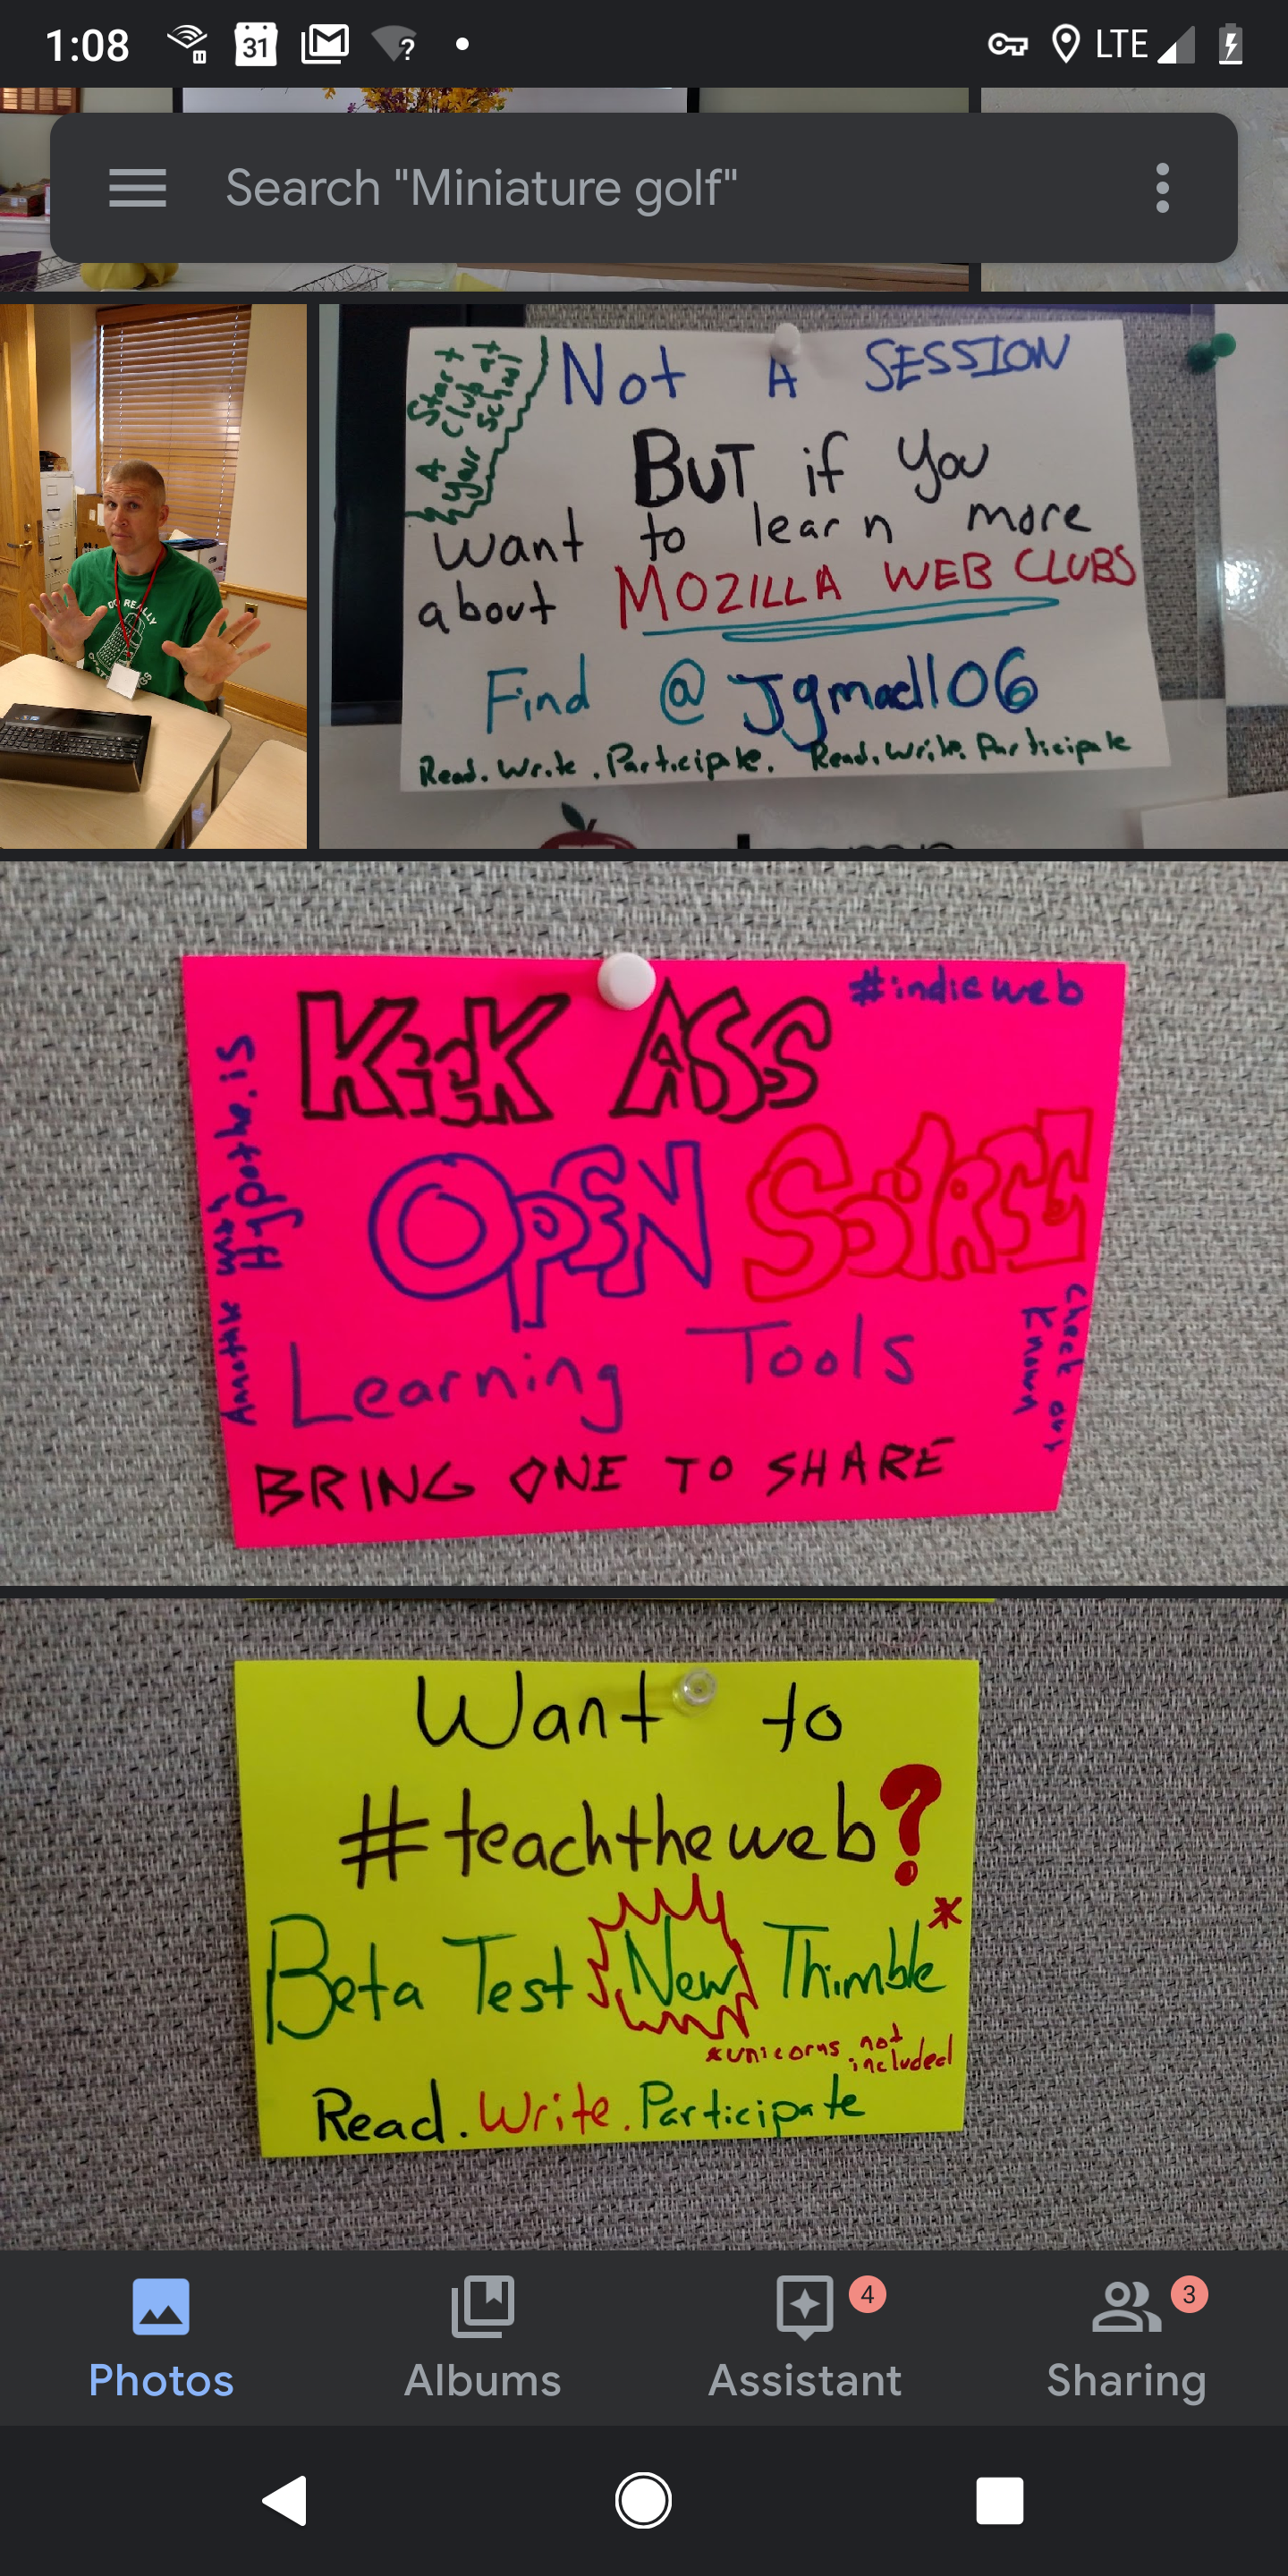 1:08
31
?
LTE
Search "Miniature golf"
DO REALLY
Start
A Club at
your School
Not A SESSION
BUT if you
want to learn more
about MOZILLA WEB CLUBS
Find @Jgmac1106
Read. Write. Participate. Read. Write. Participate
#indieweb
KicK ASS
OPEN SOURCE
Learning Tools
BRING ONE TO SHARE
Annotate with
Hypothe.is
Check out
Known
Want to
#teachtheweb?
Beta Test New Thimble*
*unicorns not
included
Read. Write. Participate
4
3
Photos
Albums
Assistant
Sharing